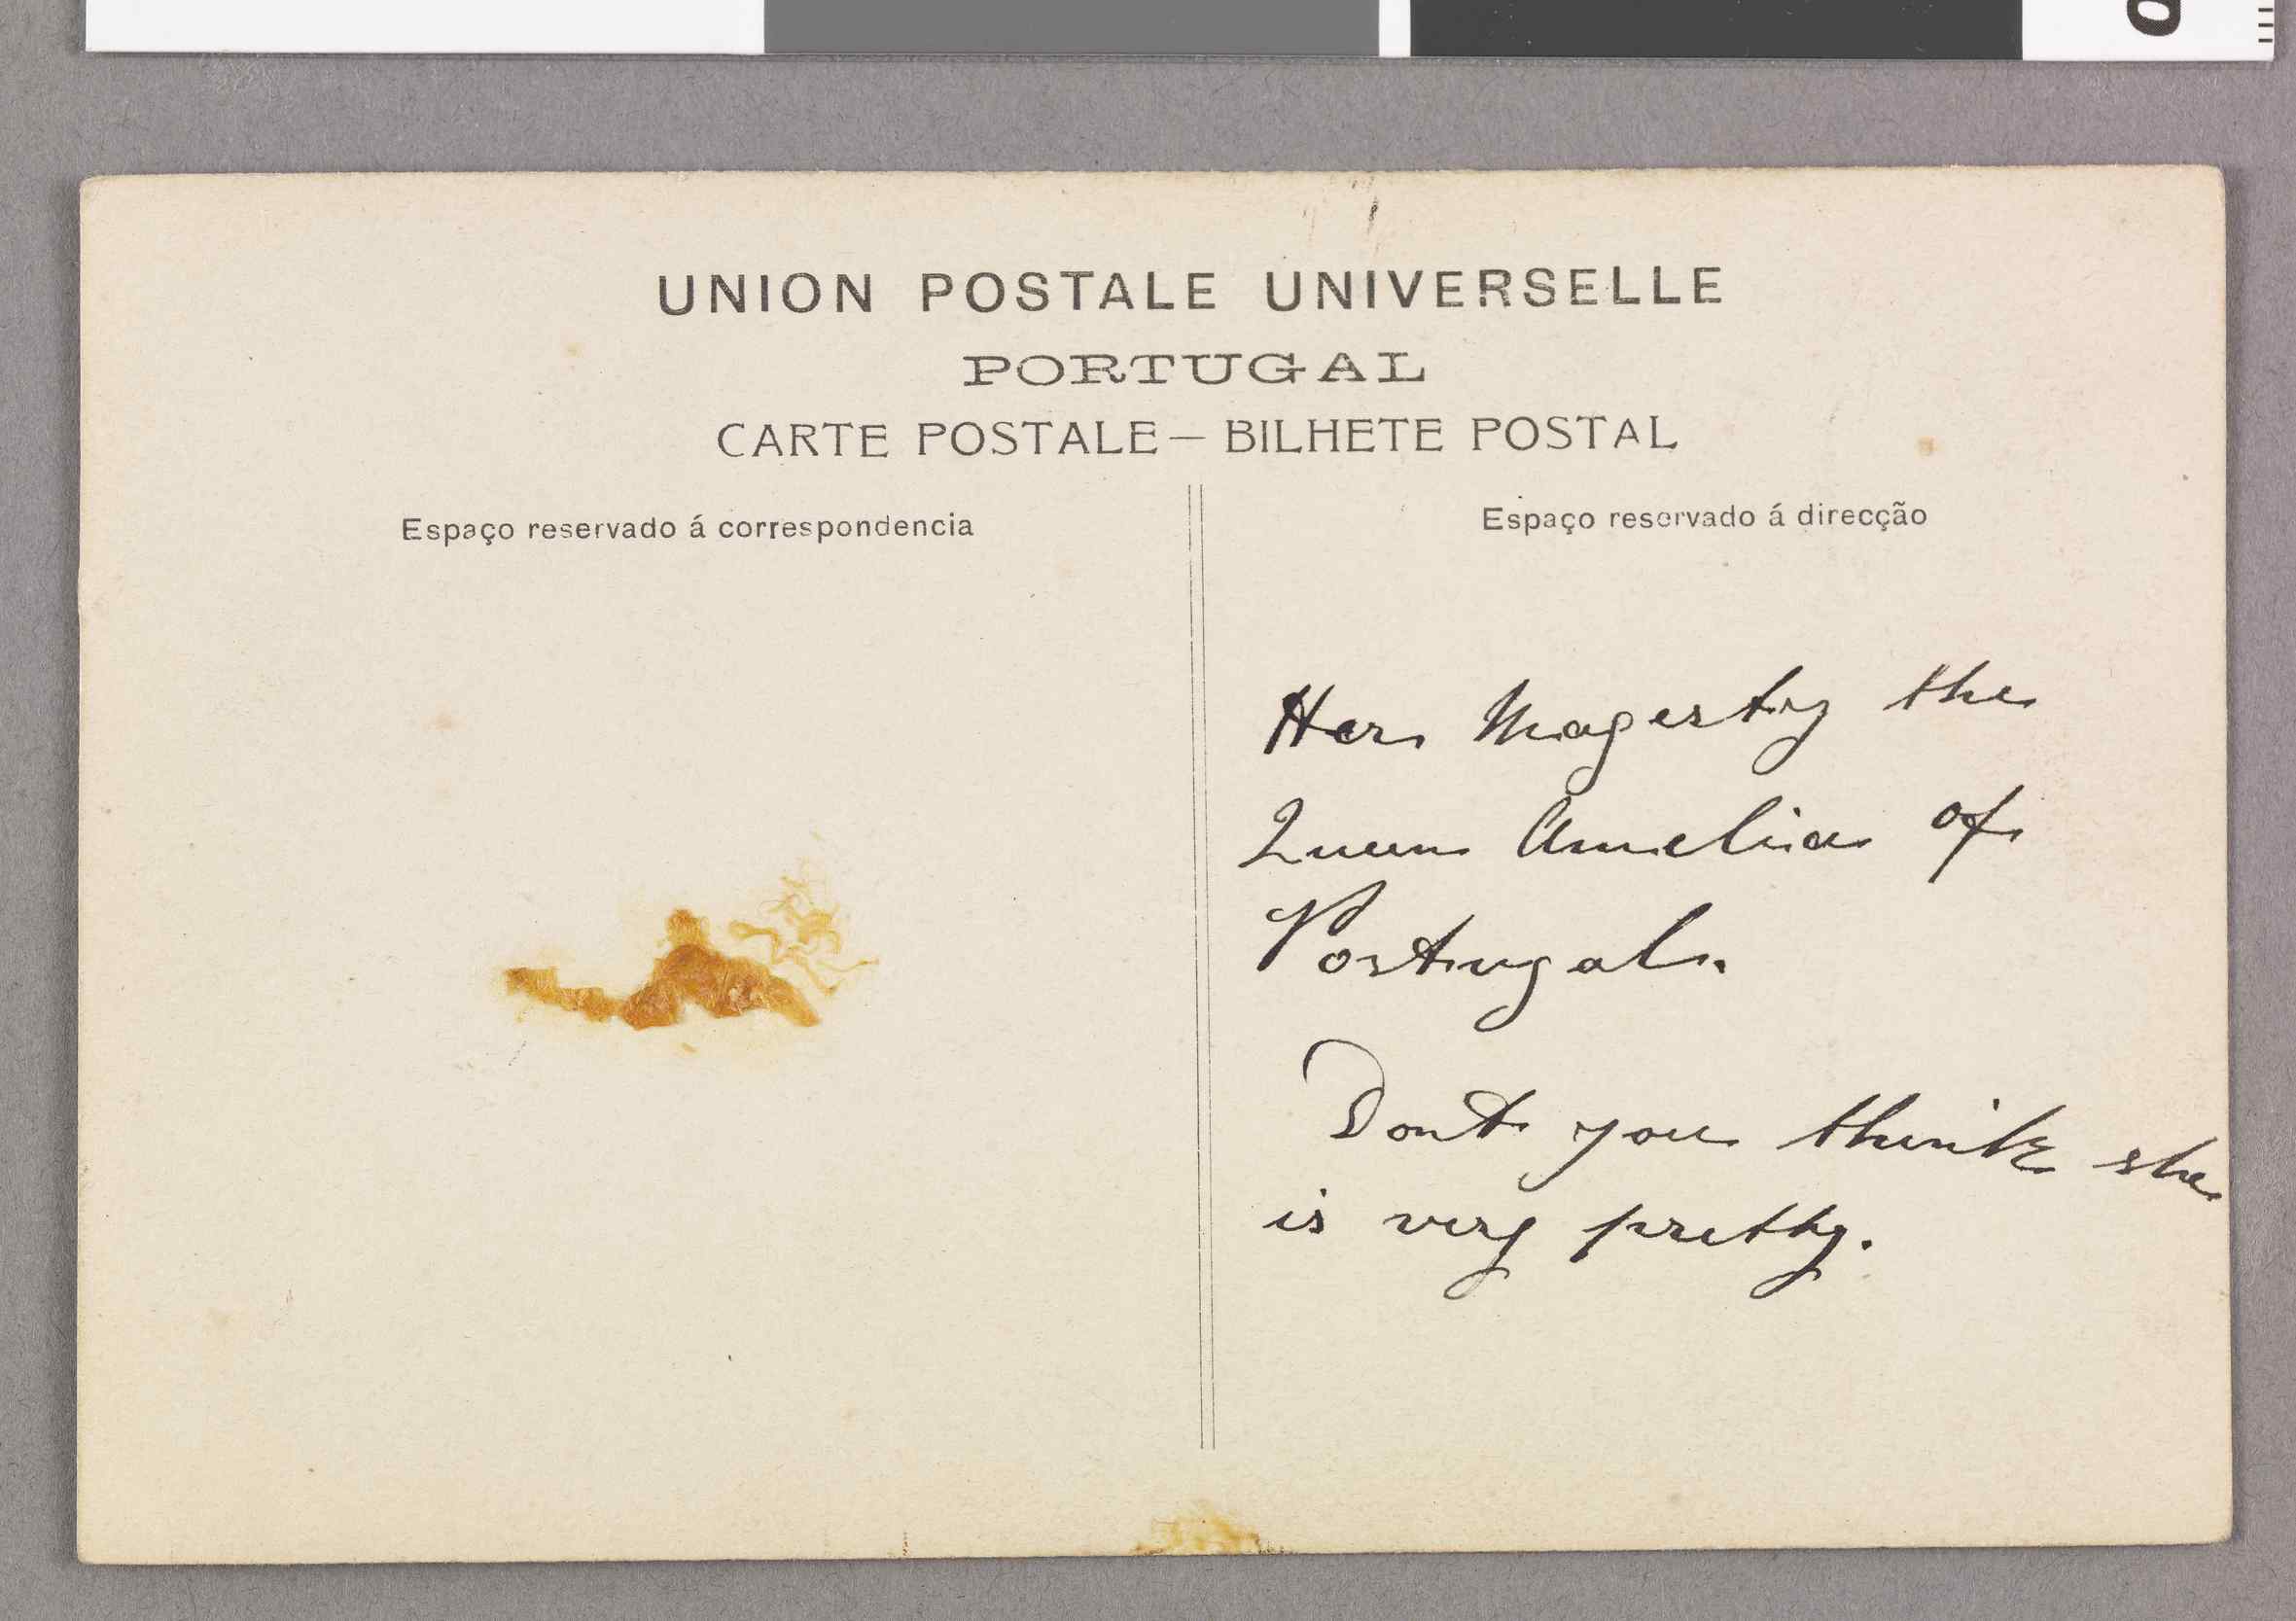 UNION POSTALE UNIVERSELLE
PORTUGAL
CARTE POSTALE — BILHETE POSTAL
Espaço reservado á correspondencia
Espaço reservado á direcção
Her Magesty the
Queen Amelia of
Portugal.
Dont you think she
is very pretty.